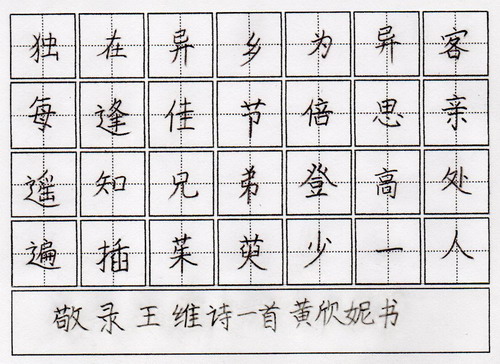 独在异乡为异客
每逢佳节倍思亲
遥知兄弟登高处
遍插茱萸少一人
敬录王维诗一首黄欣妮书